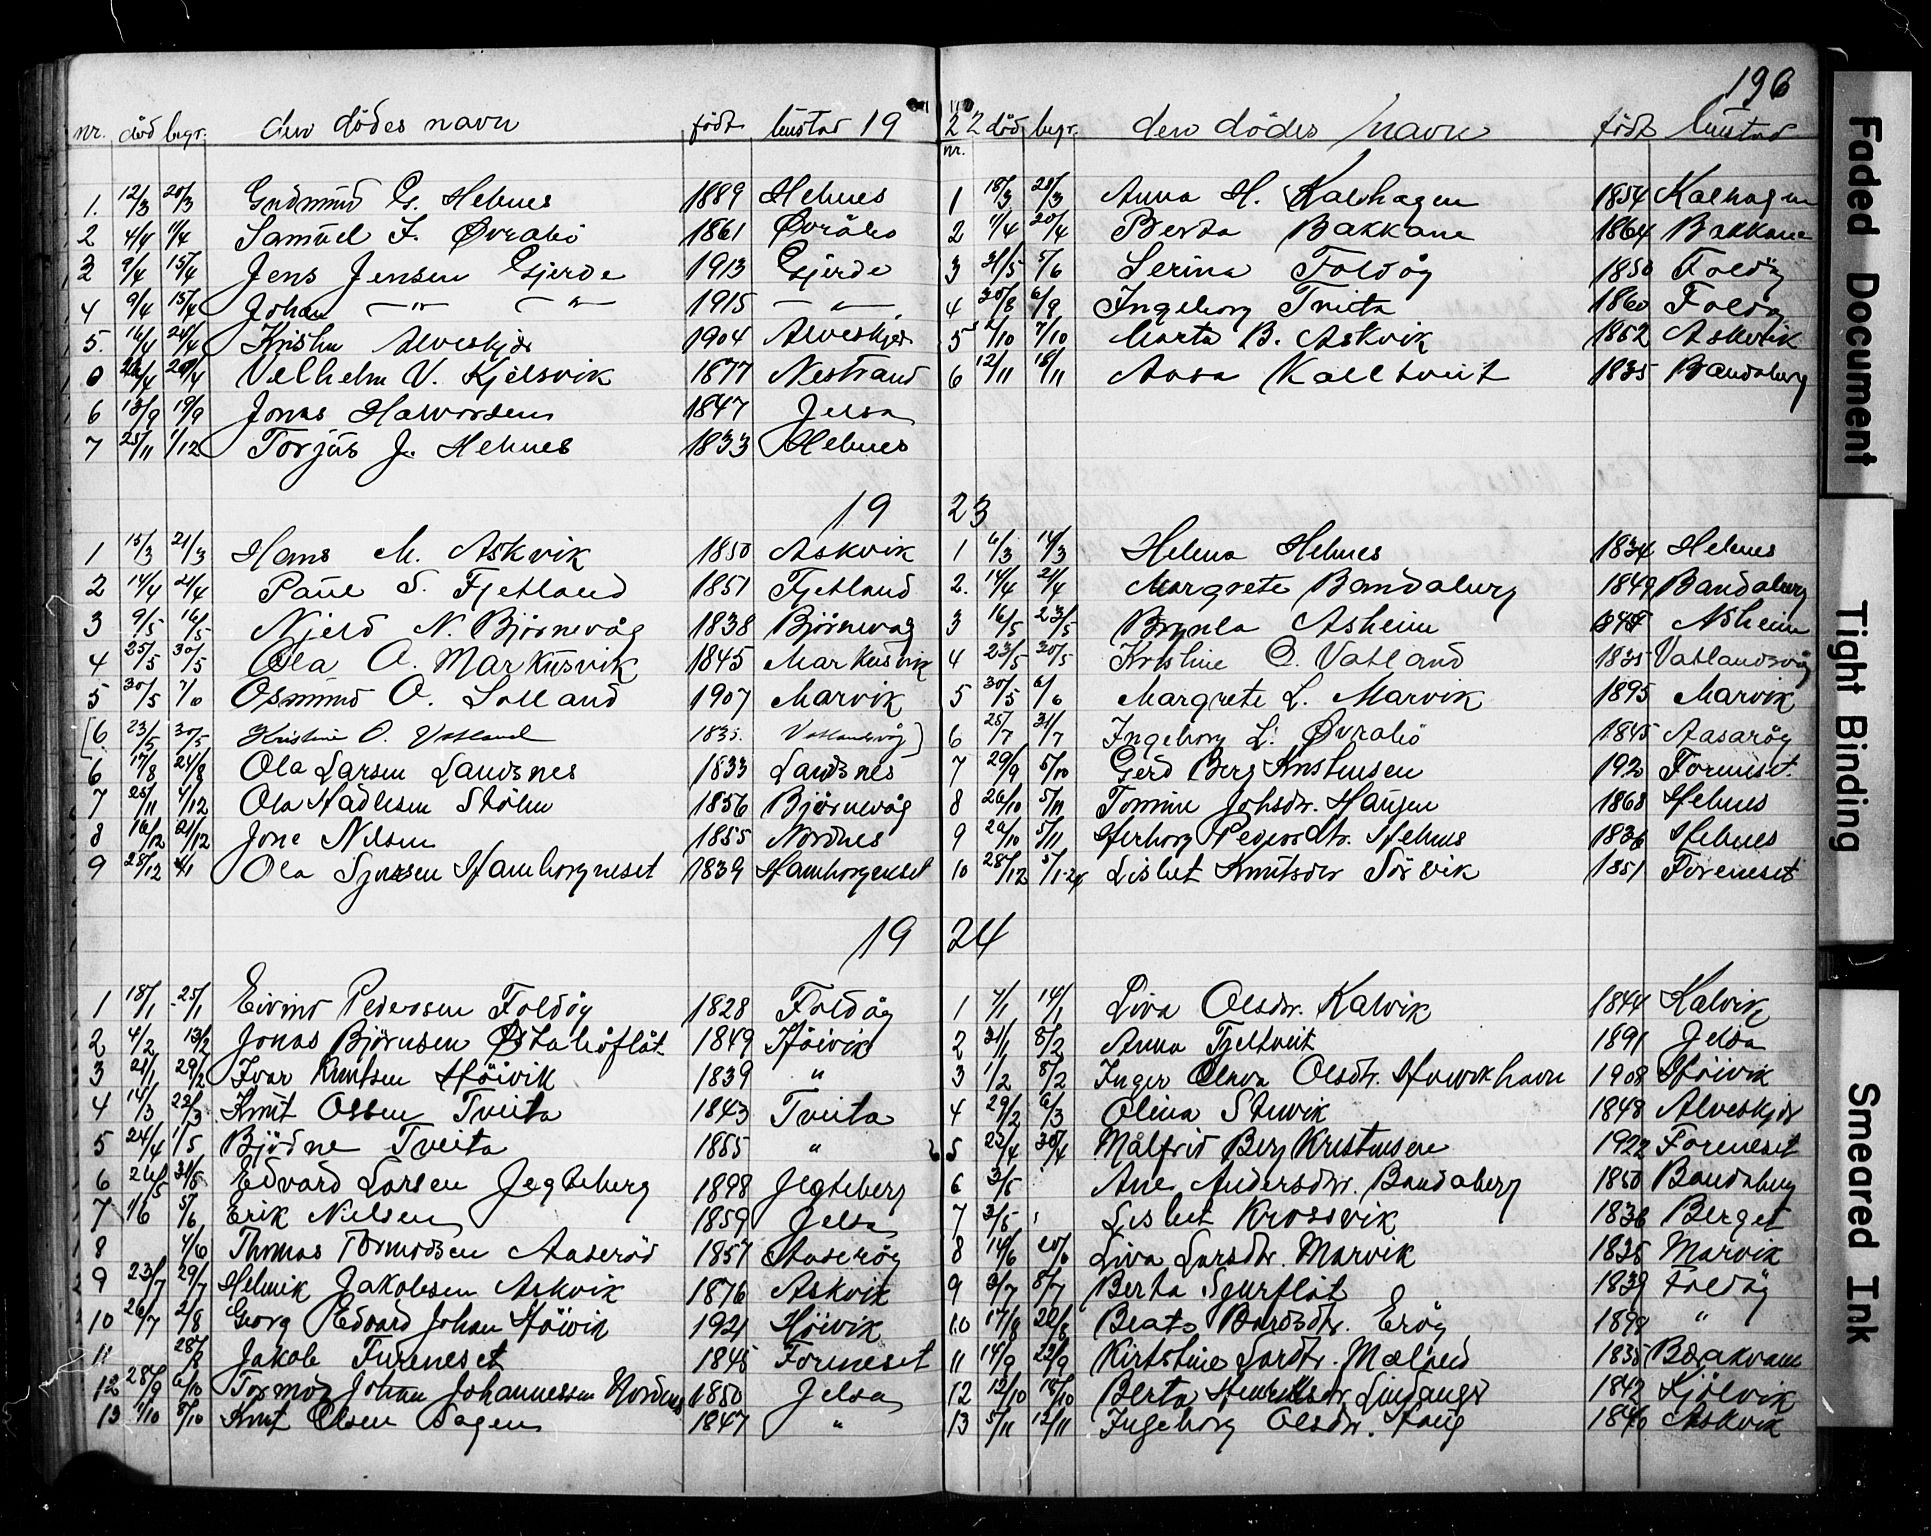 196
nr. død begr. den dödes navn født bustad 19
1. 12/3 20/3 Gudmund G. Hebnes 1889 Hebnes
2 4/4 11/4 Samuel I. Øvrabö 1861 Øvråbø
3 9/4 15/4 Jens Jensen Gjerde 1913 Gjerde
4 9/4 15/4 Johan — " — — " — 1915 — " —
5. 16/4 24/4 Alveskjær 1904 Alveskjer
0 Velhelm V. Kjølsvik 1877 Nestrand
6 13/9 19/9 Jonas Halvorsen 1847 Jelsa
7 25/11 1/12 Torjus J. Hebnes 1833 Hebnes
22 død begr. den dödes navn födt bustad
nr.
1 18/3 25/3 Anna H. Kalhagen 1854 Kalhagen
2 11/4 20/4 Berta Bakkane 1864 Bakkane
3 31/5 5/6 Serina Foldøy 1850 Foldøy
4 30/8 6/9 Ingeborg Tveita 1860 Foldøy
5 7/10 Marta B. Askvik 1862 Askvik
6 12/11 18/11 Aasa Kalltveit 1835 Bandaberg
19 23
1 15/3 21/3 Hans M. Askvik 1850 Askvik
2 14/4 21/4 Paul S. Fjetland 1851 Fjetland
3 9/5 16/5 Njeld N. Bjørnevåg 1838 Bjørnevag
4 25/5 30/5 Ola O. Markusvik 1845 Markusvik
5 30/5 7/6 Osmund O. Lolland 1907 Marvik
[6 23/5 30/5 Kristine O. Vatland 1835. Vatlandsvåg]
6 17/8 24/8 Ola Larsen Landsnes 1833 Landsnes
7 25/11 4/12 Ola Hadlesen Stølen 1856 Bjørnevåg
8 16/12 21/12 Jone Nilsen 1855 Nordnes
9 28/12 4/1 Ola Hamborgneset 1839 Hamborgneset
1 6/3 14/3 Helena Hebnes 1834 Hebnes
2. 14/4 21/4 Margrete Bandaberg 1849 Bandaberg
3 16/5 23/5 Brynla Asheim Asheim
4 23/5 30/5 Kristine O. Vatland 1835 Vatlandsvåg
5 30/5 6/6 Margrete L. Marvik 1895 Marvik
6 25/7 31/7 Ingeborg L. Øvrabö 1845 Aasarøy
7 29/9 5/10 Gerd Berg Kristensen 192 Foreneset.
8 26/10 5/11 Tomine Johsdtr. Haugen 1868 Hebnes
9 5/11 Herborg Pedersdtr. Hebnes 1836 Hebnes
10 28/12 5/1-24 Lisbet Knutsdtr Sørvik 1851 Foreneset
19 24
1 18/1 25/1 Eivind Pedersen Foldøy 1828 Foldøy
2 4/2 13/2 Jonas Björnsen Østabøflåt 1849 Høivik
3 21/1 29/2 Ivar Knutsen Høivik 1839 "
4 14/3 22/3 Knut Olsen Tveita 1843 Tveita
5 24/4 1/5 Björne Tveita 1885 "
6 26/5 31/5 Edvard Larsen Jegteberg 1898 Jegteberg
7 1/6 5/6 Erik Nielsen 1859 Jelsa
8 4/6 Thomas Tormodsen Aaserød 1857 Aaserøy
9 23/7 29/7 Helmik Jakobsen Askvik 1876 Askvik
10 26/7 2/8 Georg Edvard Johan Høivik 1921 Høivik
11 28/8 Jakob Fureneset 1845 Foreneset
12 28/9 6/10 Tormod Johan Johannessen Nordnes 1850 Jelsa
13 1/10 8/10 Knut Olsen Sagen 1847 "
1 7/1 14/1 Liva Olsdtr. Kalvik 1844 Kalvik
2 31/1 8/2 Anna Tjeltveit 1891 Jelsa
3 1/2 8/2 Inger Olava Olsdtr. 1908 Høivik
4 29/2 6/3 Olina Stuvik 1848 Alveskjer
5 22/4 30/4 Målfrid Berg Kristensen 1922 Foreneset
6 3/5 Ane Andersdtr. Bandaberg 1850 Bandaberg
7 3/5 Lisbet Krossvik 1836 Berget
8 14/6 20/6 Liva Larsdtr. Marvik 1835 Marvik
9 2/7 8/7 Berta Spurflåt 1839 Foldøy
10 17/8 22/8 Beata Bårdsdtr. Erøy 1898 "
11 14/9 22/9 Kirtstine Lardtr. Mæland 1835 Barkvam
12 12/10 18/10 Berta Henriksdtr Lindanger 1842 Kjølvik
13 5/11 12/11 Ingeborg Olsdtr. Haug 1840 Askvik
Faded Document
Tight Binding
Smeared Ink